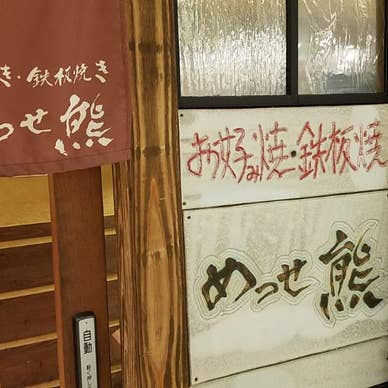 き・鉄板焼き
めっせ熊
お好み焼・鉄板焼
めっせ熊
自動